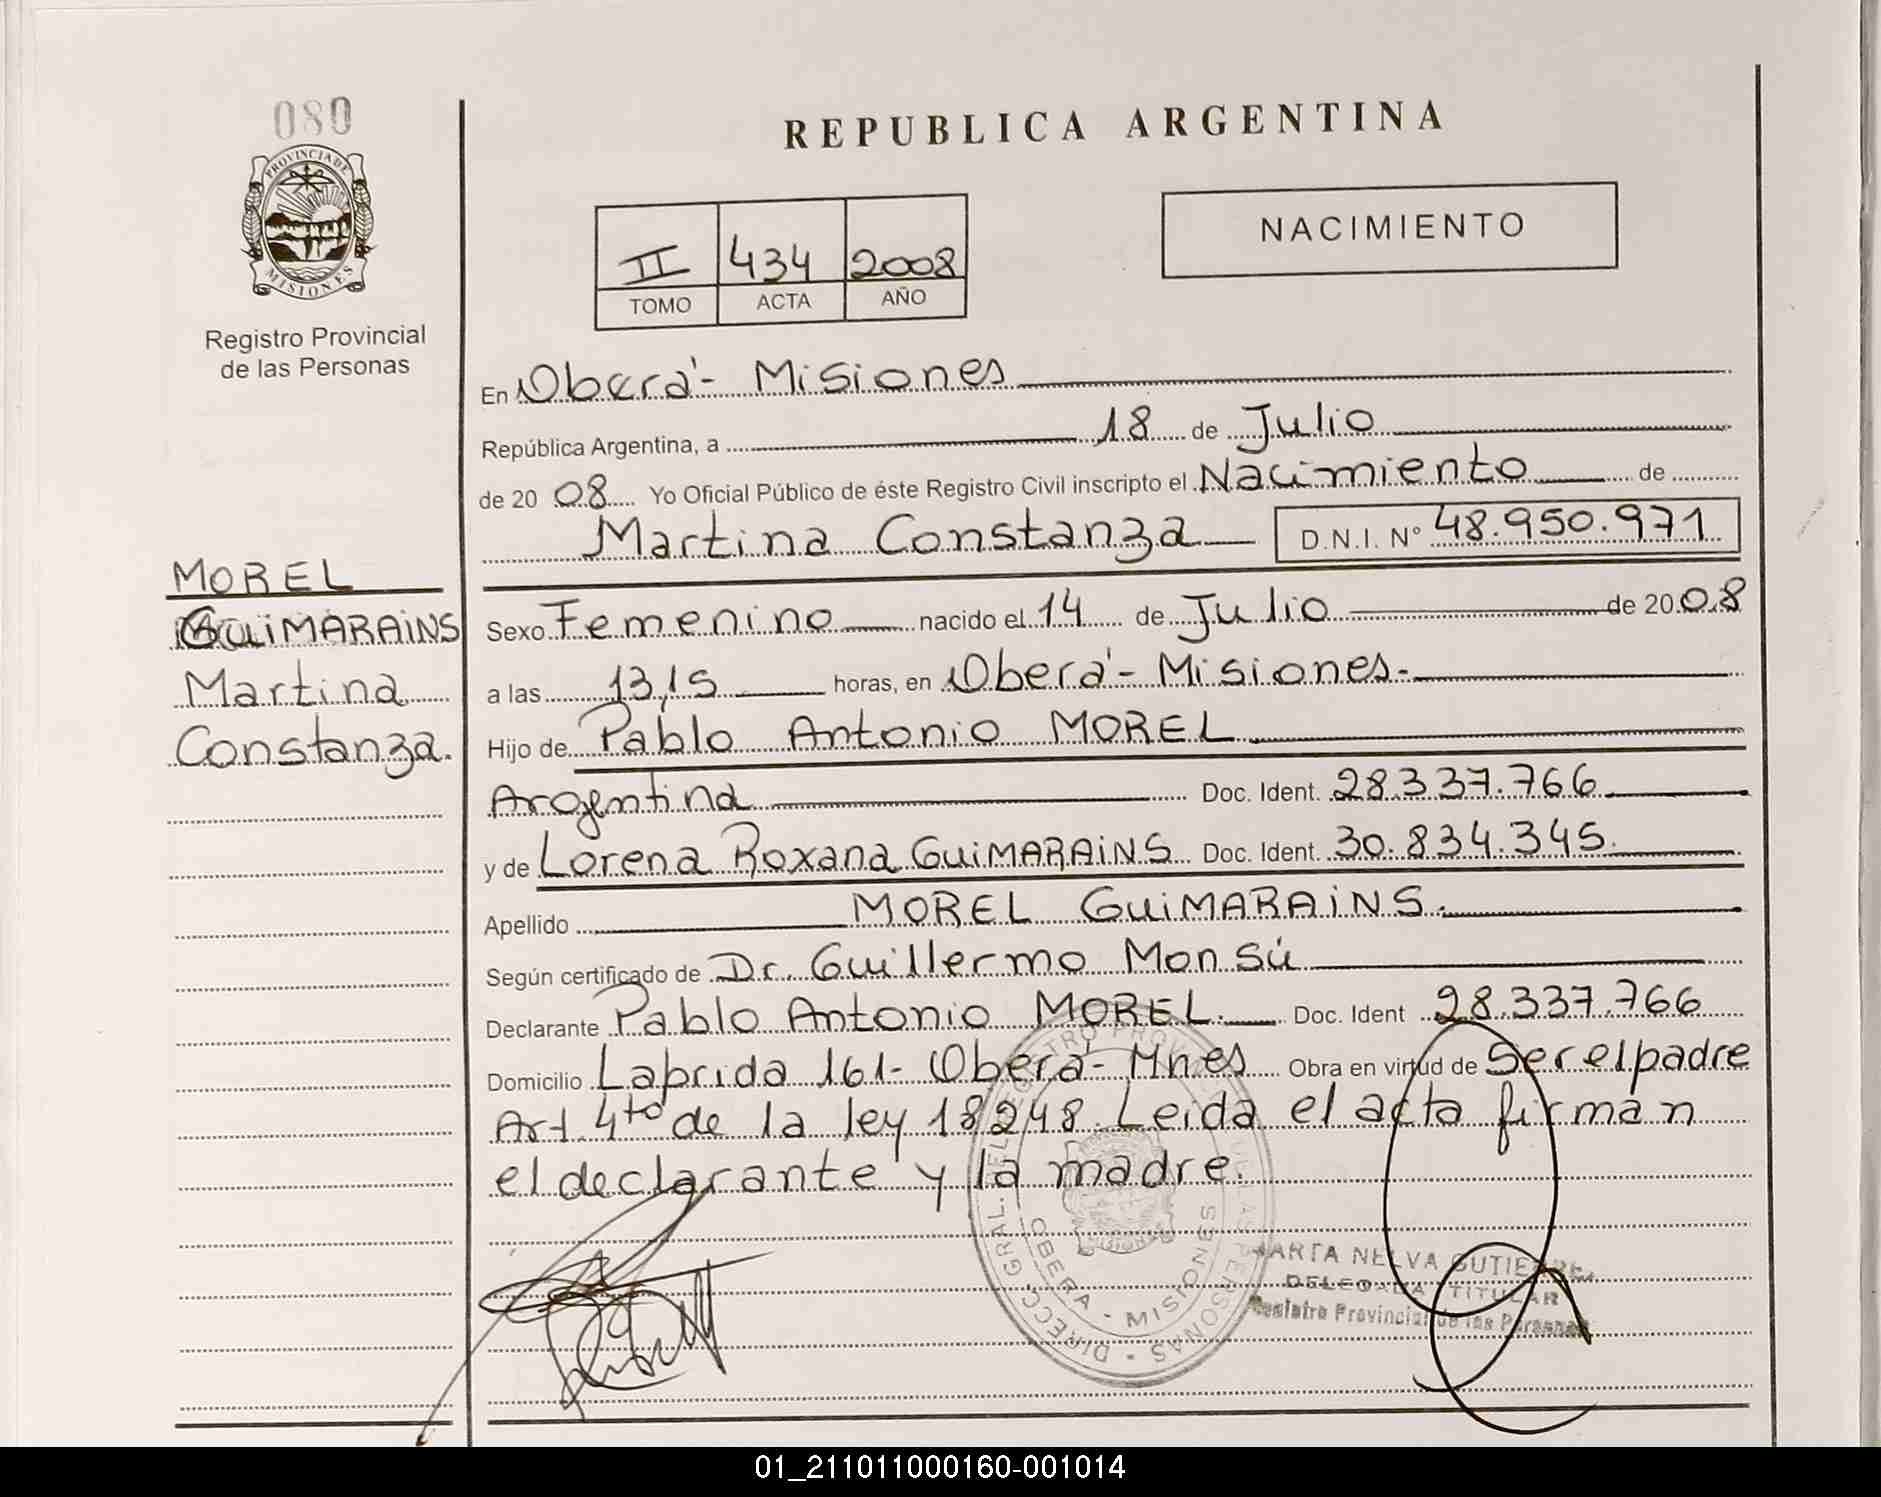 080
PROVINCIA DE
MISIONES
Registro Provincial
de las Personas
MOREL
GUiMARAiNS
Martina
Constanza.
REPUBLICA ARGENTINA
II 434 2008
TOMO ACTA AÑO
NACIMIENTO
En Oberá - Misiones
República Argentina, a 18 de Julio
de 20 08 Yo Oficial Público de éste Registro Civil inscripto el Nacimiento de
Martina Constanza D.N.I. Nº 48.950.971
Sexo Femenino nacido el 14 de Julio de 20 08
a las 13,15 horas, en Oberá - Misiones.
Hijo de Pablo Antonio MOREL
Argentina Doc. Ident. 28.337.766
y de Lorena Roxana GUiMARAiNS Doc. Ident. 30.834.345.
Apellido MOREL GUiMARAiNS.
Según certificado de Dr. Guillermo Monsú
Declarante Pablo Antonio MOREL. Doc. Ident 28.337.766
Domicilio Laprida 161 - Oberá - Mnes Obra en virtud de Ser el padre
Art. 4to de la ley 18248. Leida el acta firman
el declarante y la madre.
DIRECC. GRAL. DEL REGISTRO PROVINCIAL DE LAS PERSONAS
OBERA - MISIONES
MARTA NELVA GUTIERREZ
DELEGADA TITULAR
Registro Provincial de las Personas
01_211011000160-001014